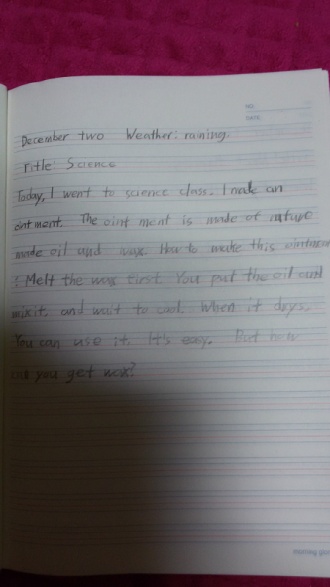 NO.
DATE
December two Weather: raining.
Title: Science
Today, I went to science class. I made an
oint ment. The oint ment is made of nature
made oil and wax. How to make this ointment
: Melt the wax first. You put the oil and
mix it. and wait to cool. When it drys,
You can use it. It's easy. But how
can you get wax?